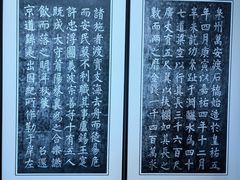 泉州萬安渡石橋始造於皇祐五
年四月庚寅以嘉祐四年十二月
辛未訖功纍趾于淵釃水為四十
七道梁空以行其長三千六百尺
廣丈有五尺翼以扶欄如其長之
數而兩之靡金錢一千四百萬求
諸施者渡實支海去舟而徒易危
而安民莫不利職其事盧錫王寔
許忠浮圖義波宗善等十有五人
既成太守莆陽蔡襄為之合樂讌
飲而落之明年秋蒙召還
京道繇是出因紀所作勒于岸左